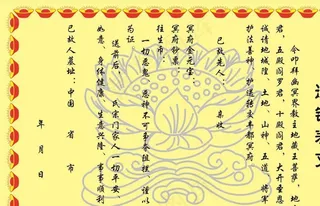 今叩拜幽冥界教主地藏王菩萨，地
君，五殿阎罗君，十殿阎君，大开圣恩
诚请地城隍 土地 山神 五道 将军
护法善神，护送转交丰都冥府
已故先人： 亲收
冥府金元宝
冥府钞票：
往生币：
一切恶鬼，恶神不可争夺阻拦，谨以
为证
送前后， 氏宗门家人一切平安、
如意、身体健康、生意兴隆、事事顺利
已故人墓址：中国 省 市
年 月 日